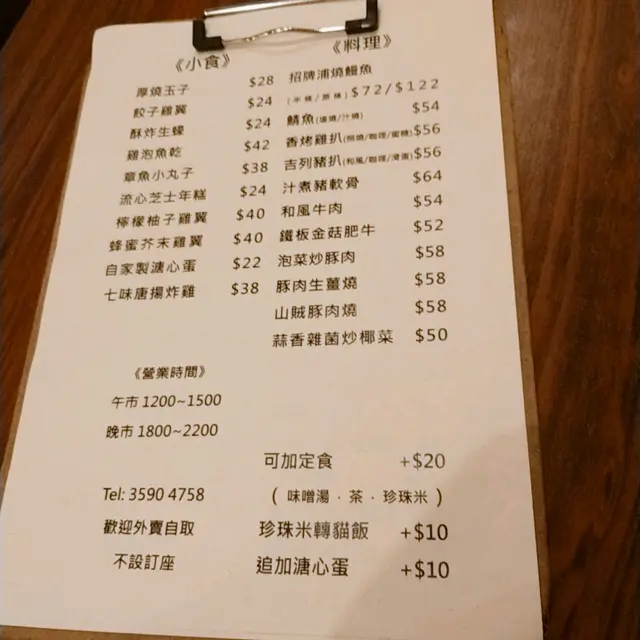 《小食》
厚燒玉子 $28
餃子雞翼 $24
酥炸生蠔 $24
雞泡魚乾 $42
章魚小丸子 $38
流心芝士年糕 $24
檸檬柚子雞翼 $40
蜂蜜芥末雞翼 $40
自家製溏心蛋 $22
七味唐揚炸雞 $38
《料理》
招牌浦燒鰻魚
(半條/原條) $72/$122
鯖魚(鹽燒/汁燒) $54
香烤雞扒(照燒/咖喱/蜜糖) $56
吉列豬扒(和風/咖喱/滑蛋) $56
汁煮豬軟骨 $64
和風牛肉 $54
鐵板金菇肥牛 $52
泡菜炒豚肉 $58
豚肉生薑燒 $58
山賊豚肉燒 $58
蒜香雜菌炒椰菜 $50
《營業時間》
午市 1200~1500
晚市 1800~2200
Tel: 3590 4758
歡迎外賣自取
不設訂座
可加定食 +$20
( 味噌湯．茶．珍珠米 )
珍珠米轉貓飯 +$10
追加溏心蛋 +$10